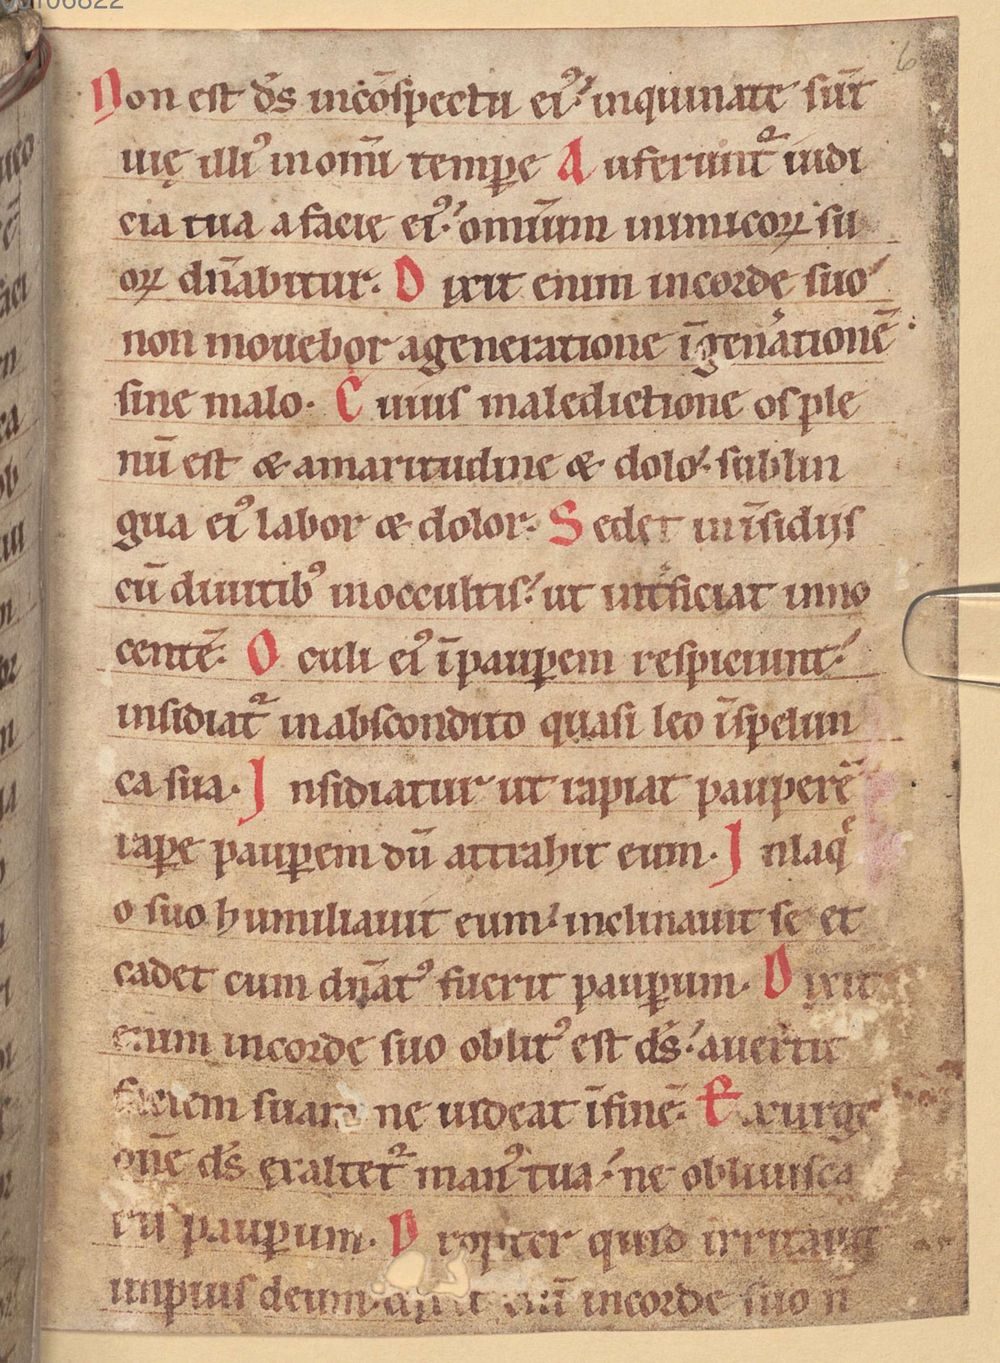 00106822
6
Non est d̄s inc̄ospectu ei᾿: inquinate sūt
uię illi᾿ in om̄i temꝑe Auferunt᷑ iudi
cia tua a facie ei᾿: om̄ium inimicoꝝ su
oꝝ dn̄abitur. Dixit enim incorde suo
non mouebor ageneratione īgenātionē
sine malo. Cuius maledictione os ple
nū est & amaritudine & dolo. sublin
gua ei᾿ labor & dolor. Sedet in īsidijs
cū diuitib᾿ inoccultis: ut int̄ficiat inno
centē. Oculi ei᾿ īpauꝑem respiciunt:
insidiat᷑ inabscondito quasi leo īspelun
ca sua. Insidiatur ut rapiat pauperē
raꝑe pauꝑem dū attrahit eum. Inlaq̄
o suo humiliauit eum: inclinauit se et
cadet cum dn̄at᾿ fuerit pauꝑum. Dixit
enim incorde suo oblit᾿ est d̄s: auertit
faciem suam ne uideat īfinē. Exurge
dn̄e d̄s exaltet᷑ man᾿ tua: ne obliuisca
ris pauꝑum. Propter quid irritauit
impius deum. dixit eni̅ incorde suo n̄